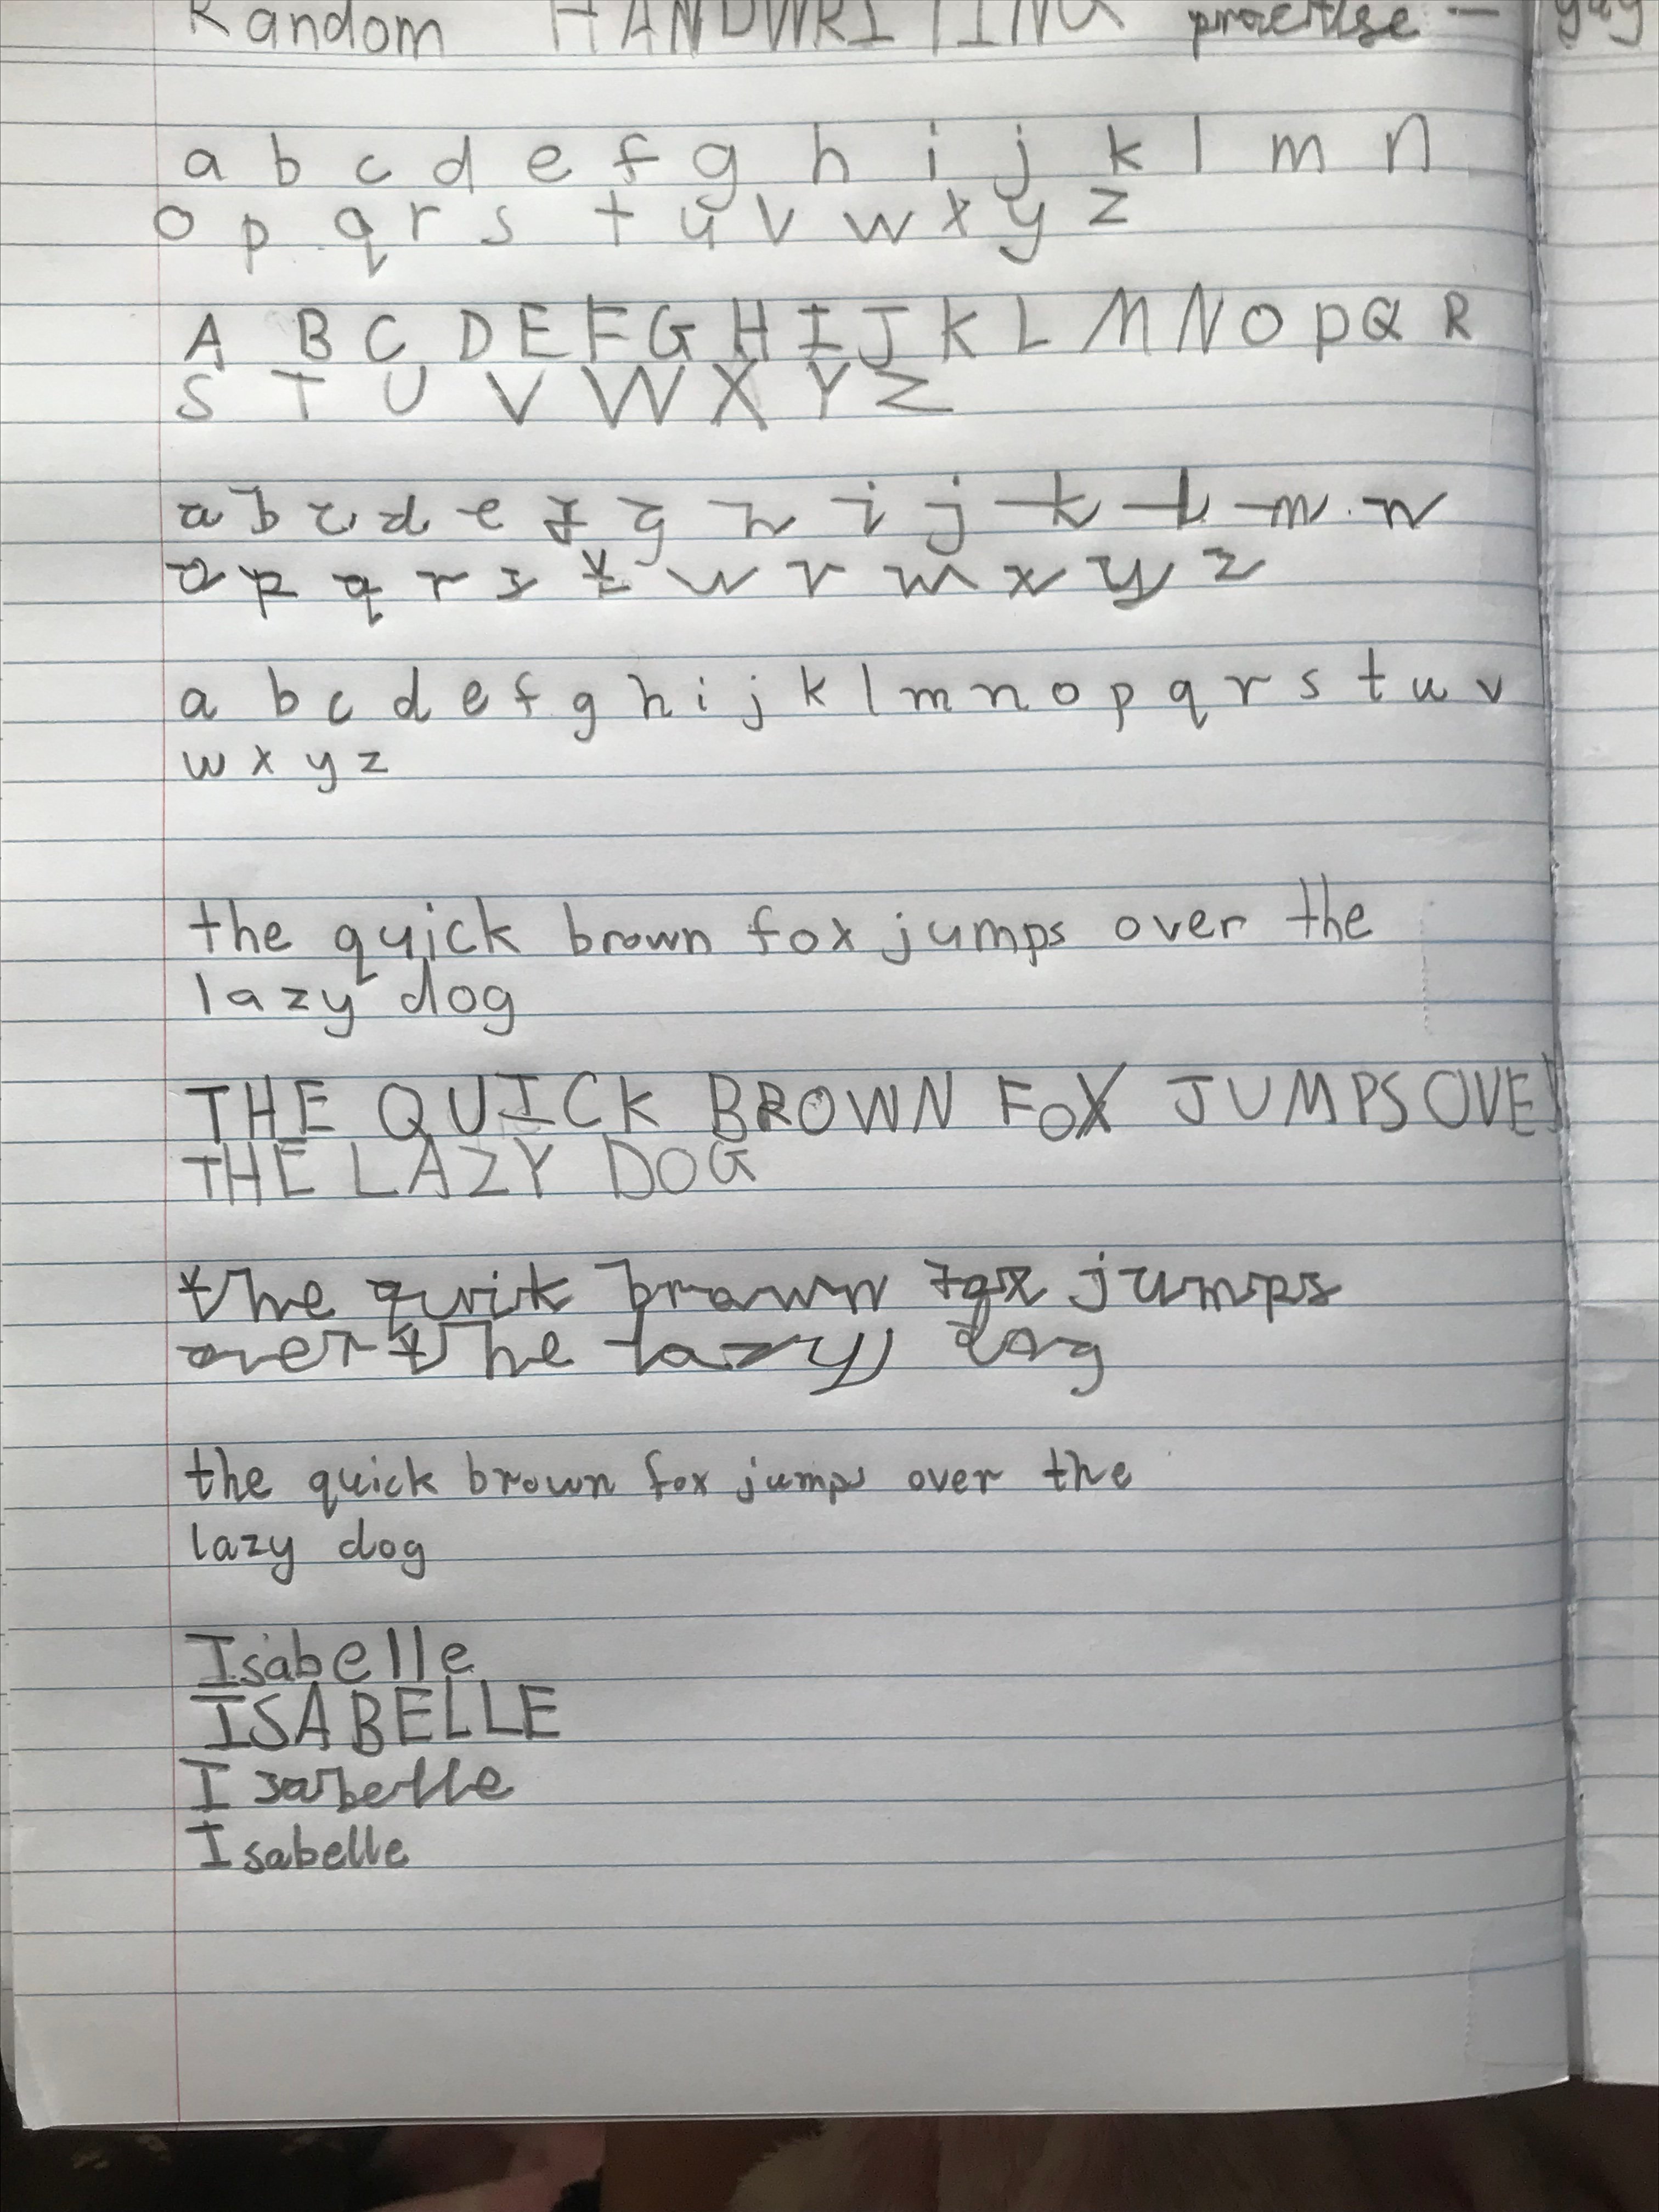 Random HANDWRITING practise - yay
a b c d e f g h i j k l m n
o p q r s t u v w x y z
A B C D E F G H I J K L M N O P Q R
S T U V W X Y Z
a b c d e f g h i j k l m n
o p q r s t u v w x y z
a b c d e f g h i j k l m n o p q r s t u v
w x y z
the quick brown fox jumps over the
lazy dog
THE QUICK BROWN FOX JUMPS OVER
THE LAZY DOG
the quick brown fox jumps
over the lazy dog
the quick brown fox jumps over the
lazy dog
Isabelle
ISABELLE
Isabelle
Isabelle